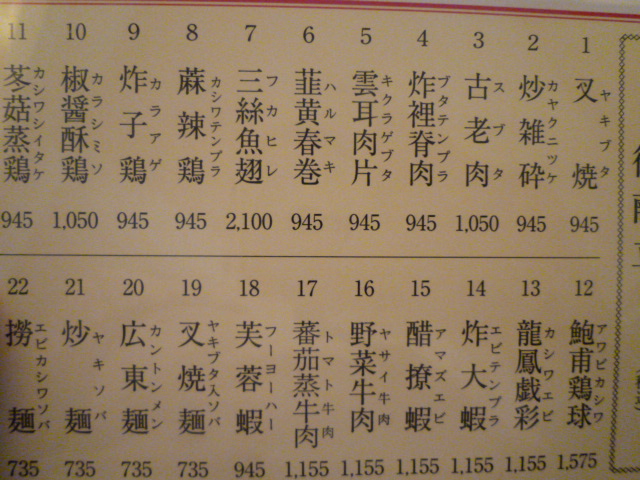 1
叉焼
ヤキブタ
945
2
炒雑砕
カヤクニツケ
945
3
古老肉
スブタ
1,050
4
炸裡脊肉
ブタテンプラ
945
5
雲耳肉片
キクラゲブタ
945
6
韮黄春巻
ハルマキ
945
7
三絲魚翅
フカヒレ
2,100
8
蔴辣鶏
カシワテンプラ
945
9
炸子鶏
カラアゲ
945
10
椒醤酥鶏
カラシミソ
1,050
11
茤菇蒸鶏
カシワシイタケ
945
12
鮑甫鶏球
アワビカシワ
1,575
13
龍鳳戯彩
カシワエビ
1,155
14
炸大蝦
エビテンプラ
1,155
15
醋撩蝦
アマズエビ
1,155
16
野菜牛肉
ヤサイ牛肉
1,155
17
蕃茄蒸牛肉
トマト牛肉
1,155
18
芙蓉蝦
フーヨーハー
945
19
叉焼麺
ヤキブタ入ソバ
735
20
広東麺
カントンメン
735
21
炒麺
ヤキソバ
735
22
撈麺
エビカシワソバ
735